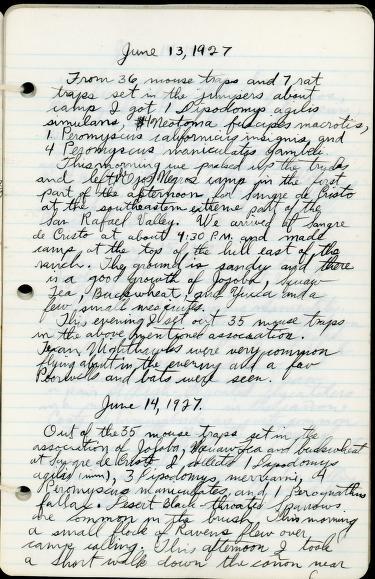 June 13, 1927
From 36 mouse traps and 7 rat
traps set in the junipers about
camp I got 1 Dipodomys agilis
simulans, #1 Neotoma fuscipes macrotis,
1 Peromyscus californicus insignis, and
4 Peromyscus maniculatus gambeli.
This morning we packed up the
and left Ojos Negros camp in the first
part of the afternoon for Sangre de Cristo
at the southeastern extreme part of the
San Rafael Valley. We arrived at Sangre
de Cristo at about 4:30 P.M. and made
camp at the top of the hill east of the
ranch. The ground is sandy and there
is a good growth of Jojoba, Squaw
Tea, Buckwheat, and Yucca and a
few small mesquites.
This evening I set out 35 mouse traps
in the above mentioned association.
Texan Nighthawks were very common
flying about in the evening and a few
Poorwills and bats were seen.
June 14, 1927.
Out of the 35 mouse traps set in the
association of Jojoba, Squaw Tea and buckwheat
at Sangre de Cristo I collected 1 Dipodomys
agilis (imm), 3 Dipodomys merriami, 4
Peromyscus maniculatus, and 1 Perognathus
fallax. Desert Black-throated Sparrows
are common in the brush. This morning
a small flock of Ravens flew over
camp calling. This afternoon I took
a short walk down the canon near